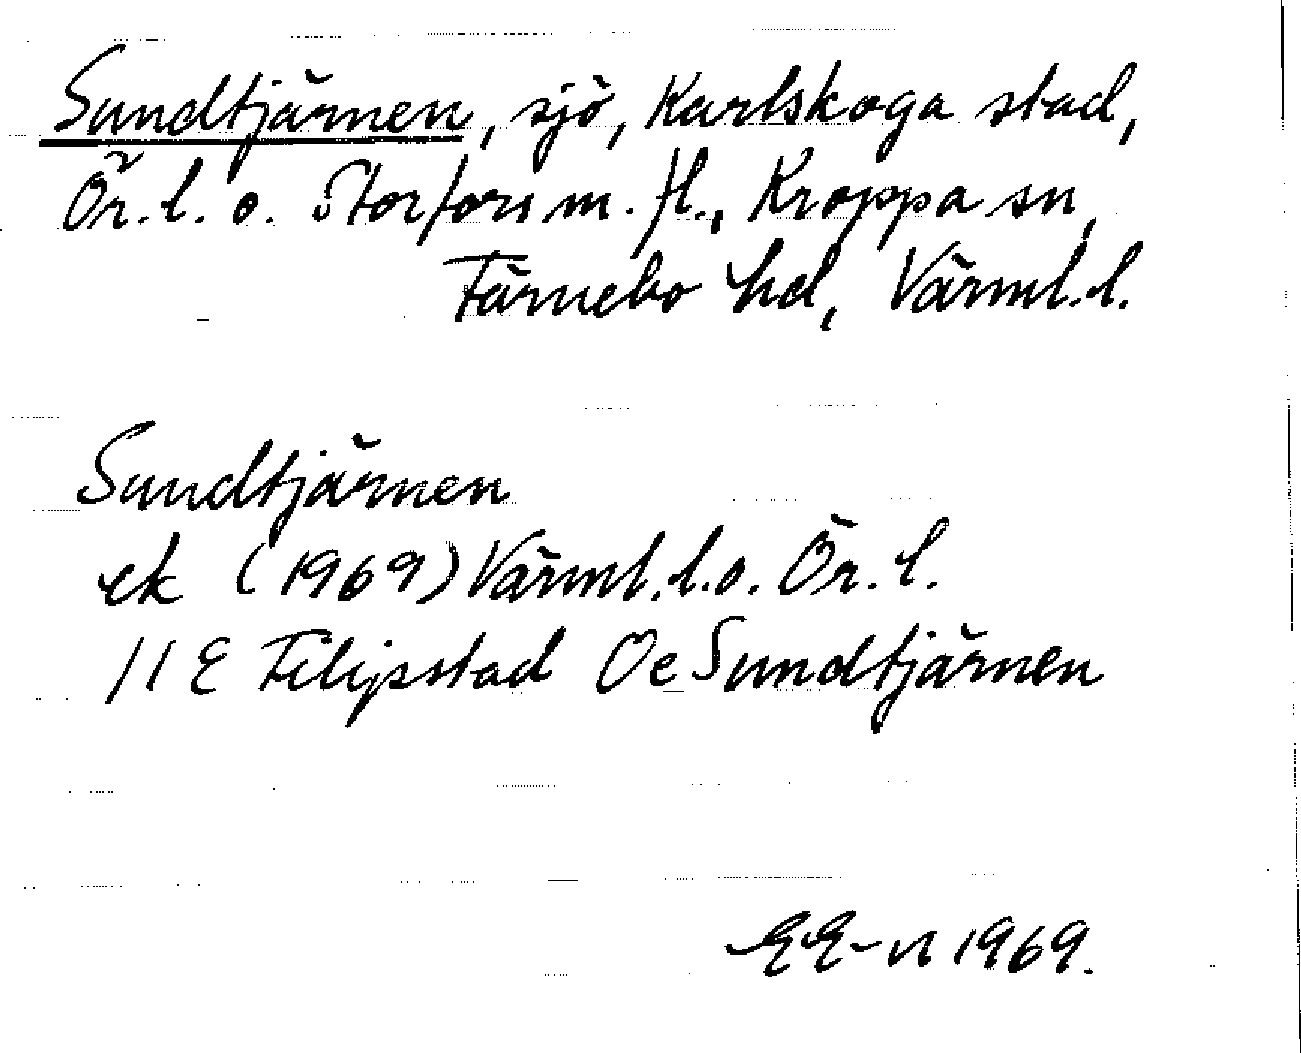 Sundtjärnen, sjö, Karlskoga stad,
Ör. l. o. Storfors m. fl., Kroppa sn,
Färnebo hd, Värml. l.
Sundtjärnen
ek (1969) Värml. l. o. Ör. l.
11 E Filipstad Oe Sundtjärnen
EE-n 1969.